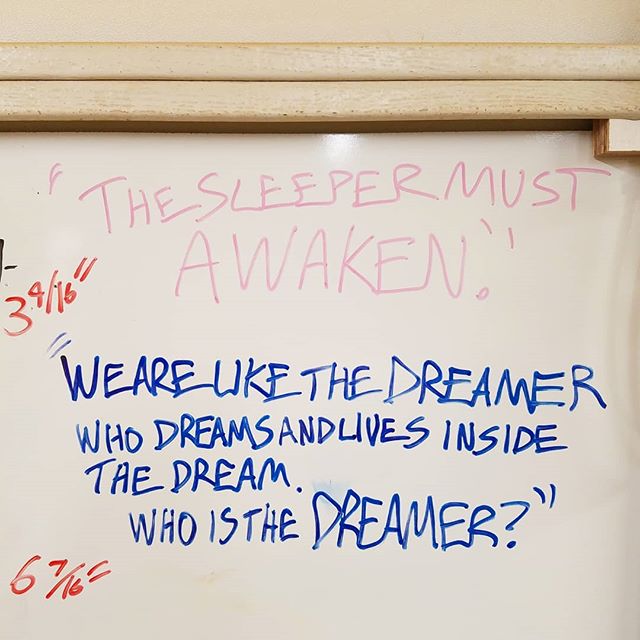 "THE SLEEPER MUST
AWAKEN."
3 4/16"
"WE ARE LIKE THE DREAMER
WHO DREAMS AND LIVES INSIDE
THE DREAM.
WHO IS THE DREAMER?"
6 7/16"